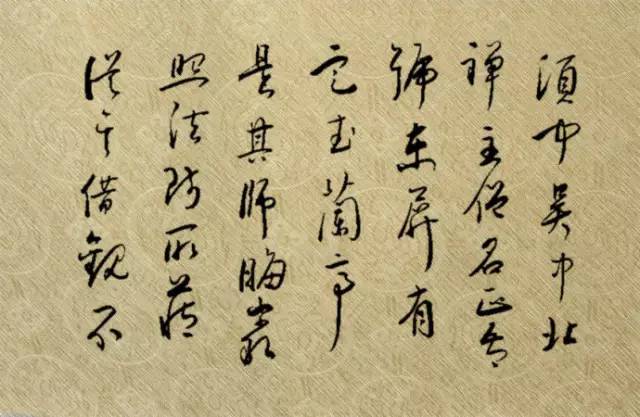 頃聞吳中北
禪主僧名正吾
號東屏有
定武蘭亭
是其師晦巖
照法師所藏
從其借觀不